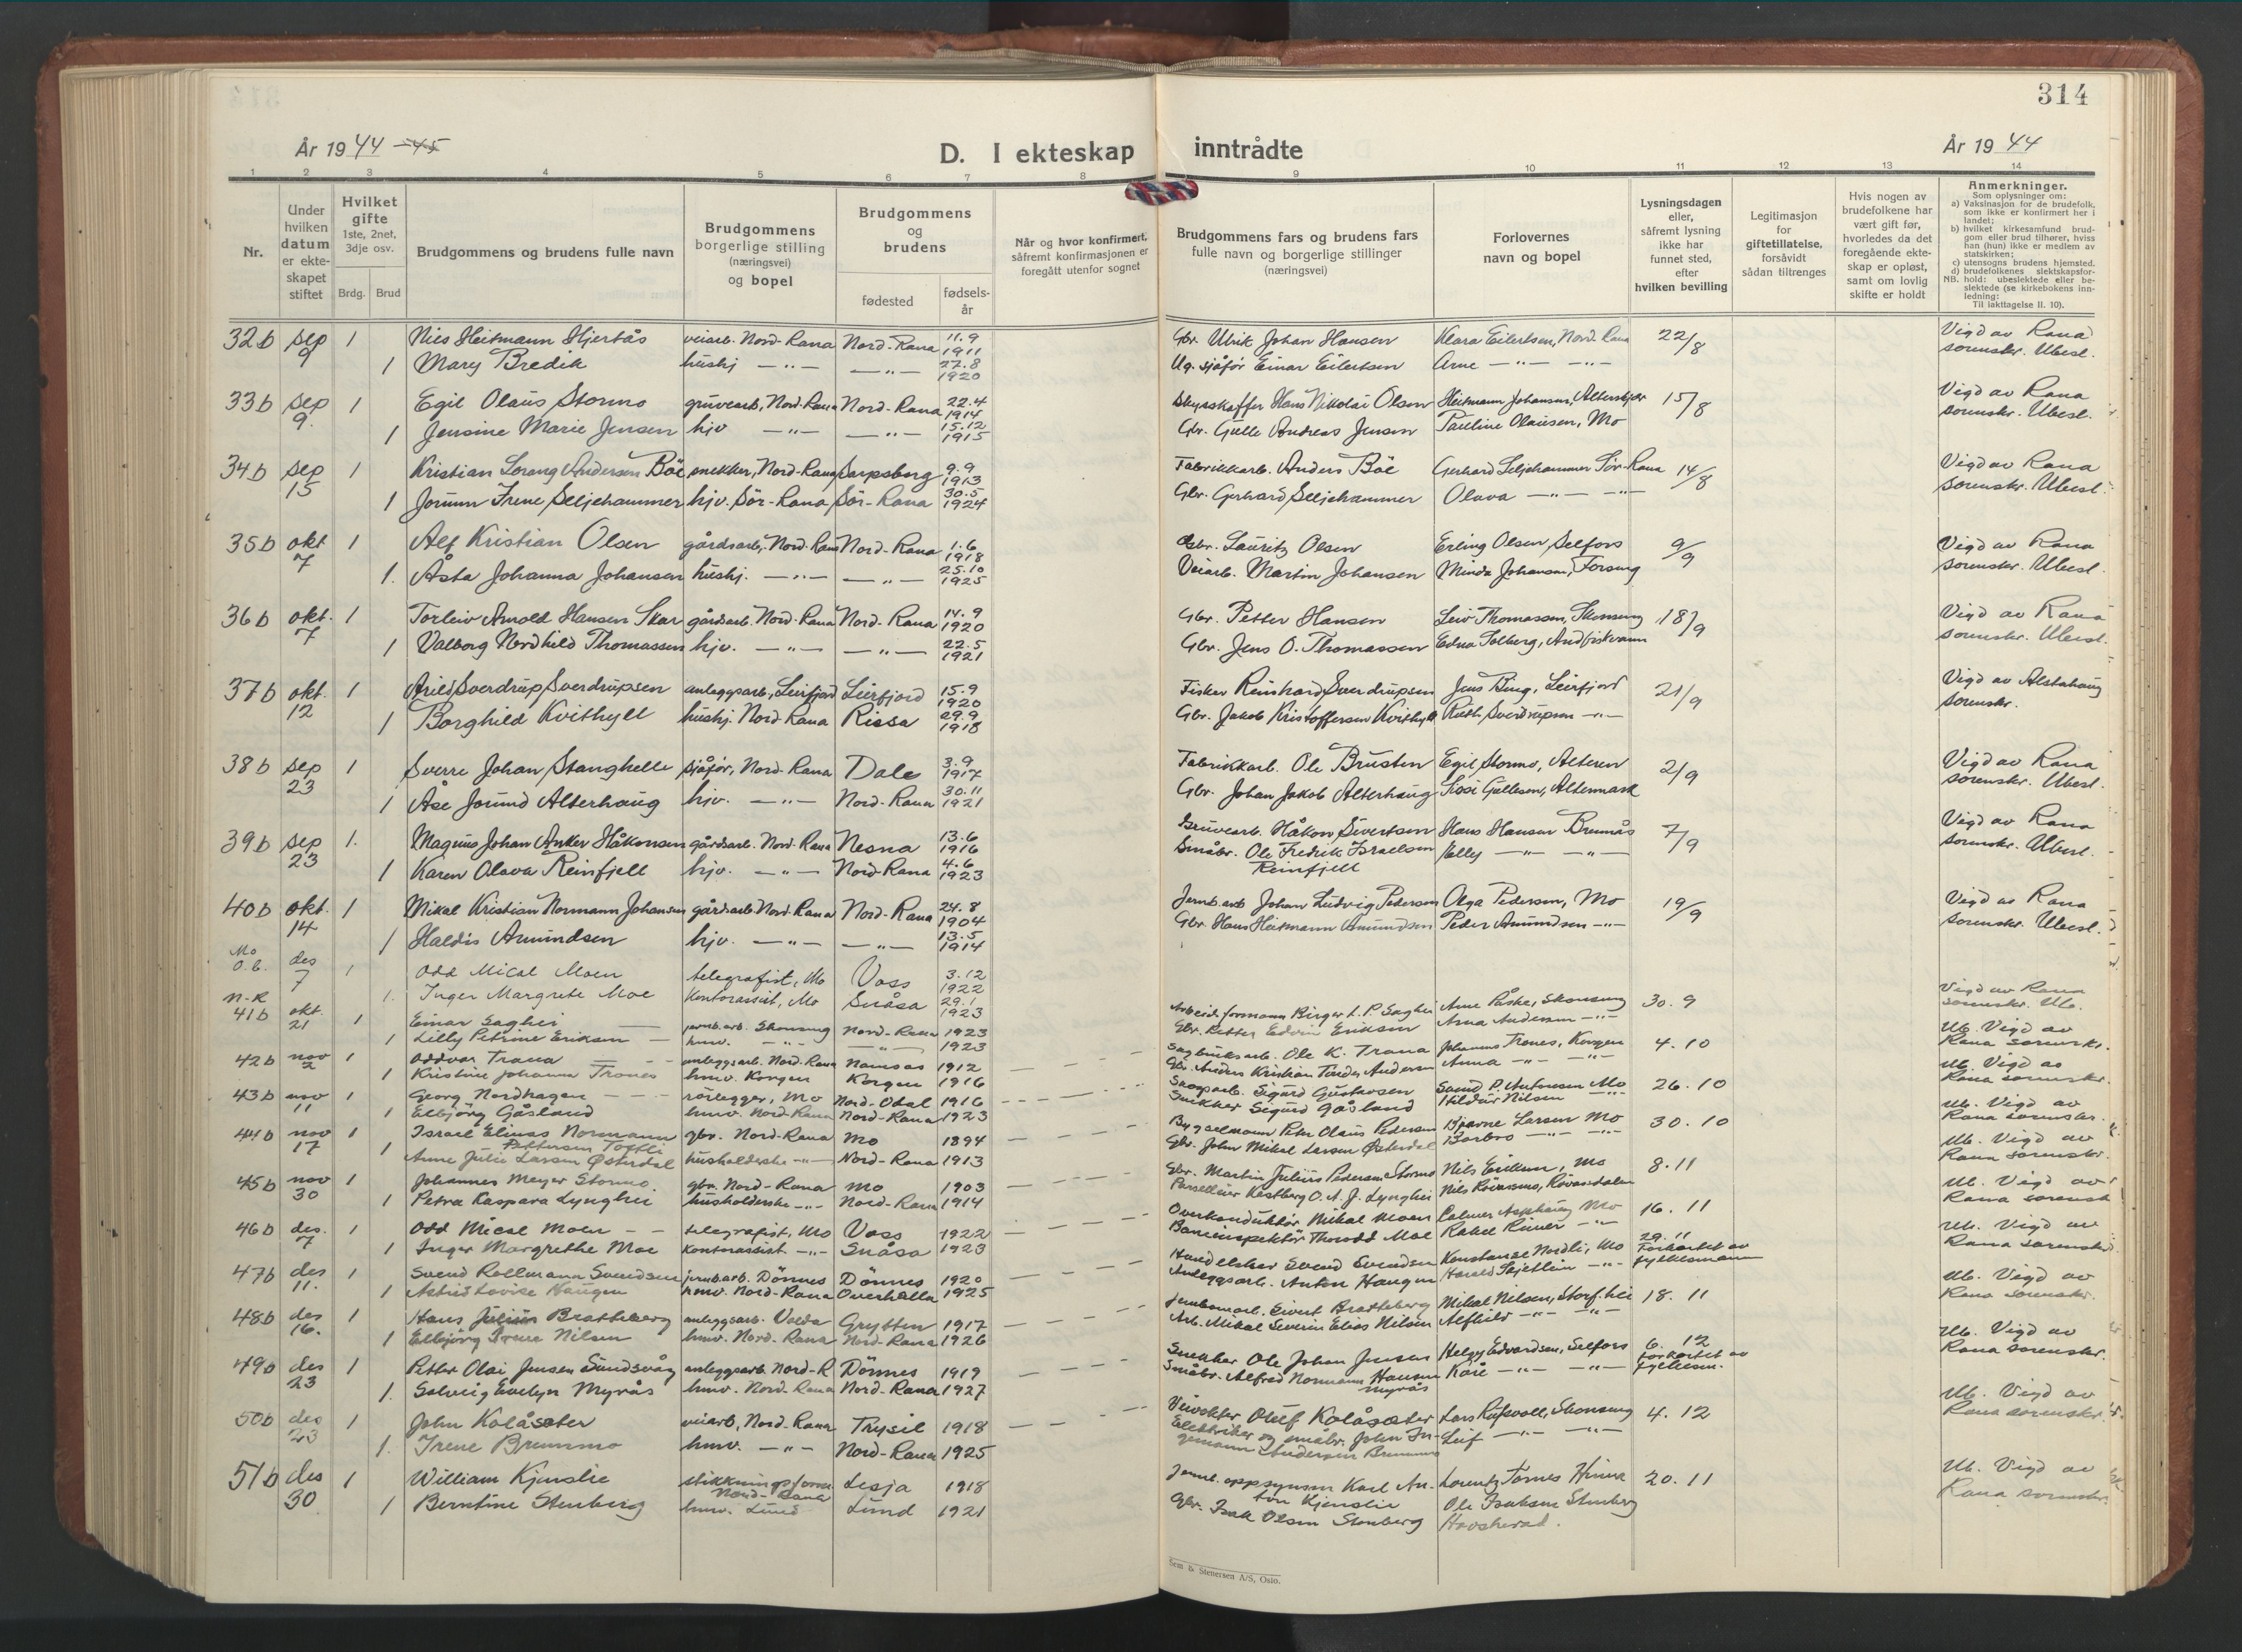 314
År 1944 -45
D. I ekteskap inntrådte
År 1944
1 2 3 4 5 6 7 8 9 10 11 12 13 14
Nr.
Under hvilken datum er ekte-skapet stiftet
Hvilket gifte 1ste, 2net, 3dje osv.
Brdg. Brud
Brudgommens og brudens fulle navn
Brudgommens borgerlige stilling (næringsvei) og bopel
Brudgommens og brudens
fødested
fødsels-år
Når og hvor konfirmert, såfremt konfirmasjonen er foregått utenfor sognet
Brudgommens fars og brudens fars fulle navn og borgerlige stillinger (næringsvei)
Forlovernes navn og bopel
Lysningsdagen eller, såfremt lysning ikke har funnet sted, efter hvilken bevilling
Legitimasjon for giftetillatelse, forsåvidt sådan tiltrenges
Hvis nogen av brudefolkene har vært gift før, hvorledes da det foregående ekte-skap er opløst, samt om lovlig skifte er holdt
Anmerkninger.
Som oplysninger om:
a) Vaksinasjon for de brudefolk, som ikke er konfirmert her i landet;
b) hvilket kirkesamfund brud-gom eller brud tilhører, hviss han (hun) ikke er medlem av statskirken;
c) utensogns brudens hjemsted.
d) brudefolkenes slektskapsfor-hold: ubeslektede eller be-slektede (se kirkebokens inn-ledning:
NB.
Til iakttagelse II. 10).
32b sep 9 1 Nils Heitmann Hjertås veiarb. Nord-Rana Nord-Rana 11.9 1911 Gbr. Ulrik Johan Hansen Klara Eilertsen, Nord-Rana 22/8 Vigd av Rana sorenskr. Ubesl.
1 Mary Bredik hushj — " — — " — 27.8 1920 Ug. sjåfør Einar Eilertsen Arne — " — — " —
33b sep 9. 1 Egil Olaus Stormo gruvearb, Nord-Rana Nord-Rana 22.4 1914 Skysskaffer Hans Nikolai Olsen Heitmann Johansen, 15/8 Vigd av Rana sorenskr. Ubesl.
1 Jensine Marie Jensen hjv — " — — " — 15.12 1915 Gbr. Gulle Andreas Jensen Pauline Olausen, Mo
34b sep 15 1 Kristian Lorang Andersen Böe snekker, Nord-Rana Sarpsborg 9.9 1913 Fabrikkarb. Anders Böe Gerhard Seljehammer Sør-Rana 14/8 Vigd av Rana sorenskr. Ubesl.
1 Jorunn Irene Seljehammer hjv. Sör-Rana Sör-Rana 30.5 1924 Gbr. Gerhard Seljehammer Olava — " — — " —
35b okt 7 1 Alf Kristian Olsen gårdsarb, Nord-Rana Nord-Rana 1.6 1918 Gbr. Lauritz Olsen Erling Olsen, Selfors 9/9 Vigd av Rana sorenskr. Ubesl.
1. Åsta Johanna Johansen hushj. — " — — " — 25.10 1925 Veiarb. Martin Johansen Minda Johansen,
36b okt. 7 1 Torleiv Arnold Hansen Skar gårdsarb. Nord-Rana Nord-Rana 14.9 1920 Gbr. Petter Hansen Leiv Thomassen, Skonseng 18/9 Vigd av Rana sorenskr. Ubesl.
1 Valborg Nordhild Thomassen hjv. — " — — " — 22.5 1921 Gbr. Jens O. Thomassen Edna Solberg, Andfiskvann
37b okt. 12 1 Arild Sverdrup Sverdrupsen anleggsarb, Leirfjord Leirfjord 15.9 1920 Fisker Reinhard Sverdrupsen Jens Bing, Leirfjord 21/9 Vigd av Alstahaug sorenskr.
1 Borghild Kvithyll hushj. Nord-Rana Rissa 29.9 1918 Gbr. Jakob Kristoffersen Kvithyll Ruth Sverdrupsen — " —
38b sep 23 1 Sverre Johan Stanghelle sjåfør, Nord-Rana Dale 3.9 1917 Fabrikkarb. Ole Brusten Egil Stormo, Alteren 2/9 Vigd av Rana sorenskr. Ubesl.
1 Åse Jorund Alterhaug hjv. — " — Nord-Rana 30.11 1921 Gbr. Johan Jakob Alterhaug Sissi Gullesen, Altermark
39b sep 23 1. Magnus Johan Anker Håkonsen gårdsarb. Nord-Rana Nesna 13.6 1916 Gruvearb. Håkon Sivertsen Hans Hansen Brennås 7/9 Vigd av Rana sorenskr. Ubesl.
1 Karen Olava Reinfjell hjv. — " — Nord-Rana 4.6 1923 Småbr. Ole Fredrik Israelsen Reinfjell — " — — " —
40b okt. 14 1 Mikal Kristian Normann Johansen gårdsarb Nord-Rana Nord-Rana 24.8 1904 Jernb.arb Johan Ludvig Pedersen Olga Pedersen, Mo 19/9 Vigd av Rana sorenskr. Ubesl.
1 Haldis Amundsen hjv. — " — — " — 13.5 1914 Gbr. Hans Heitmann Amundsen Peder Amundsen — " —
Mo O.b. des 7 1 Odd Mical Moen telegrafist, Mo Voss 3.12 1922
1. Inger Margrete Moe Kontorassist, Mo Snåsa 29.1 1923 Vigd av Rana sorenskr. Ub.
N-R 41b okt. 21 1 Einar Saghei jernb.arb. Skonseng Nord-Rana 1923 Arbeidsformann Birger L.P. Saghei Arne Påske, Skonseng 30.9
1 Lilly Petrine Eriksen hmv. — " — — " — 1923 Gbr. Petter Edvin Eriksen Anna Andersen — " — Ub. Vigd av Rana sorenskr.
42b nov 2 1 Oddvar Trana anleggsarb. Nord-Rana Namsos 1912 Sagbruksarb. Ole K. Trana Johannes Trones, Korgen 4.10 Ub. Vigd av Rana sorenskr.
1 Kristine Johanna Trones hmv. Korgen Korgen 1916 Gbr. Anders Kristian Andersen Anna — " — — " —
43b nov 11 1 Georg Nordhagen rörlegger, Mo Nord-Odal 1916 Skogarb. Sigurd Gustavsen Svend P. Antonsen Mo 26.10 Ub. Vigd av Rana sorenskr.
1 Elbjörg Gåsland hmv. Nord-Rana Nord-Rana 1923 Snekker Sigurd Gåsland Hildur Nilsen — " —
44b nov 17 1 Israel Elinas Normann Pettersen Toftli gbr. Nord-Rana Mo 1894 Peter Olaus Pedersen Bjarne Larsen Mo 30.10 Ub. Vigd av Rana sorenskr.
1 Anne Julie Larsen Østerdal husholderske — " — Nord-Rana 1913 Gbr. John Mikal Larsen Østerdal Barbro — " — — " —
45b nov 30 1 Johannes Meyer Stormo gbr. Nord-Rana Mo 1903 Gbr. Martin Julius Pedersen Stormo Nils Eriksen, Mo 8.11 Ub. Vigd av Rana sorenskr
1 Petra Kaspara Lynghei husholderske — " — Nord-Rana 1914 Parselleier Kastberg O.A.J. Lynghei Nils
46b des. 7 1 Odd Mical Moen telegrafist, Mo Voss 1922 Overkonduktör Mikal Moen Mo 16.11 Ub. Vigd av Rana sorenskr
1 Inger Margrethe Moe kontorassist. — " — Snåsa 1923 Baneinspektör Thorodd Moe Rakel — " —
47b des 11. 1 Svend Rollmann Svendsen jernb.arb. Dönnes Dönnes 1920 Svend Svendsen Konstanse Nordli, Mo 29.11 Forkortet av fylkesmann Ub. Vigd av Rana sorenskr.
1 Astrid Lovise Haugen hmv. Nord-Rana Overhalla 1925 Anleggsarb. Anton Haugen Harald — " —
48b des 16. 1 Hans Julius Bratteberg anleggsarb. Volda Grytten 1917 Sivert Bratteberg Mikal Nilsen, Storf.hei 18.11 Ub. Vigd av Rana sorenskr.
1 Elbjörg Irene Nilsen hmv. Nord-Rana Nord-Rana 1926 Arb. Mikal Severin Elias Nilsen Alfhild — " — — " —
49b des 23 1 Petter Olai Jensen Sundsvåg anleggsarb. Nord-R Dönnes 1919 Snekker Ole Johan Jensen Helgy Edvardsen, Selfors 6.12 forkortet av fylkesm. Ub. Vigd av Rana sorenskr.
1. Solveig Evelyn Myrås hmv. Nord-Rana Nord-Rana 1927 Småbr. Alfred Normann Hansen Myrås Kåre — " — — " —
50b des 23 1 John Kolåsæter veiarb, Nord-Rana Trysil 1918 Veivokter Oluf Kolåsæter Lars Skonseng 4.12 Ub. Vigd av Rana sorenskr.
1. Irene Brennmo hmv. — " — Nord-Rana 1925 Elektriker og småbr. John In-gemann Andersen Brennmo Leif — " — — " —
51b des 30 1 William Kjenslie stikkningsform. Nord-Rana Lesja 1918 Jernb. oppsynsm Karl An-ton Kjenslie Lorentz Tornes 20.11 Ub. Vigd av Rana sorenskr.
1 Berntine Stenberg hmv. Lund Lund 1921 Gbr. Isak Olsen Stenberg Ole Isaksen Stenberg Hovsherad.
Sem & Stenersen A/S, Oslo.